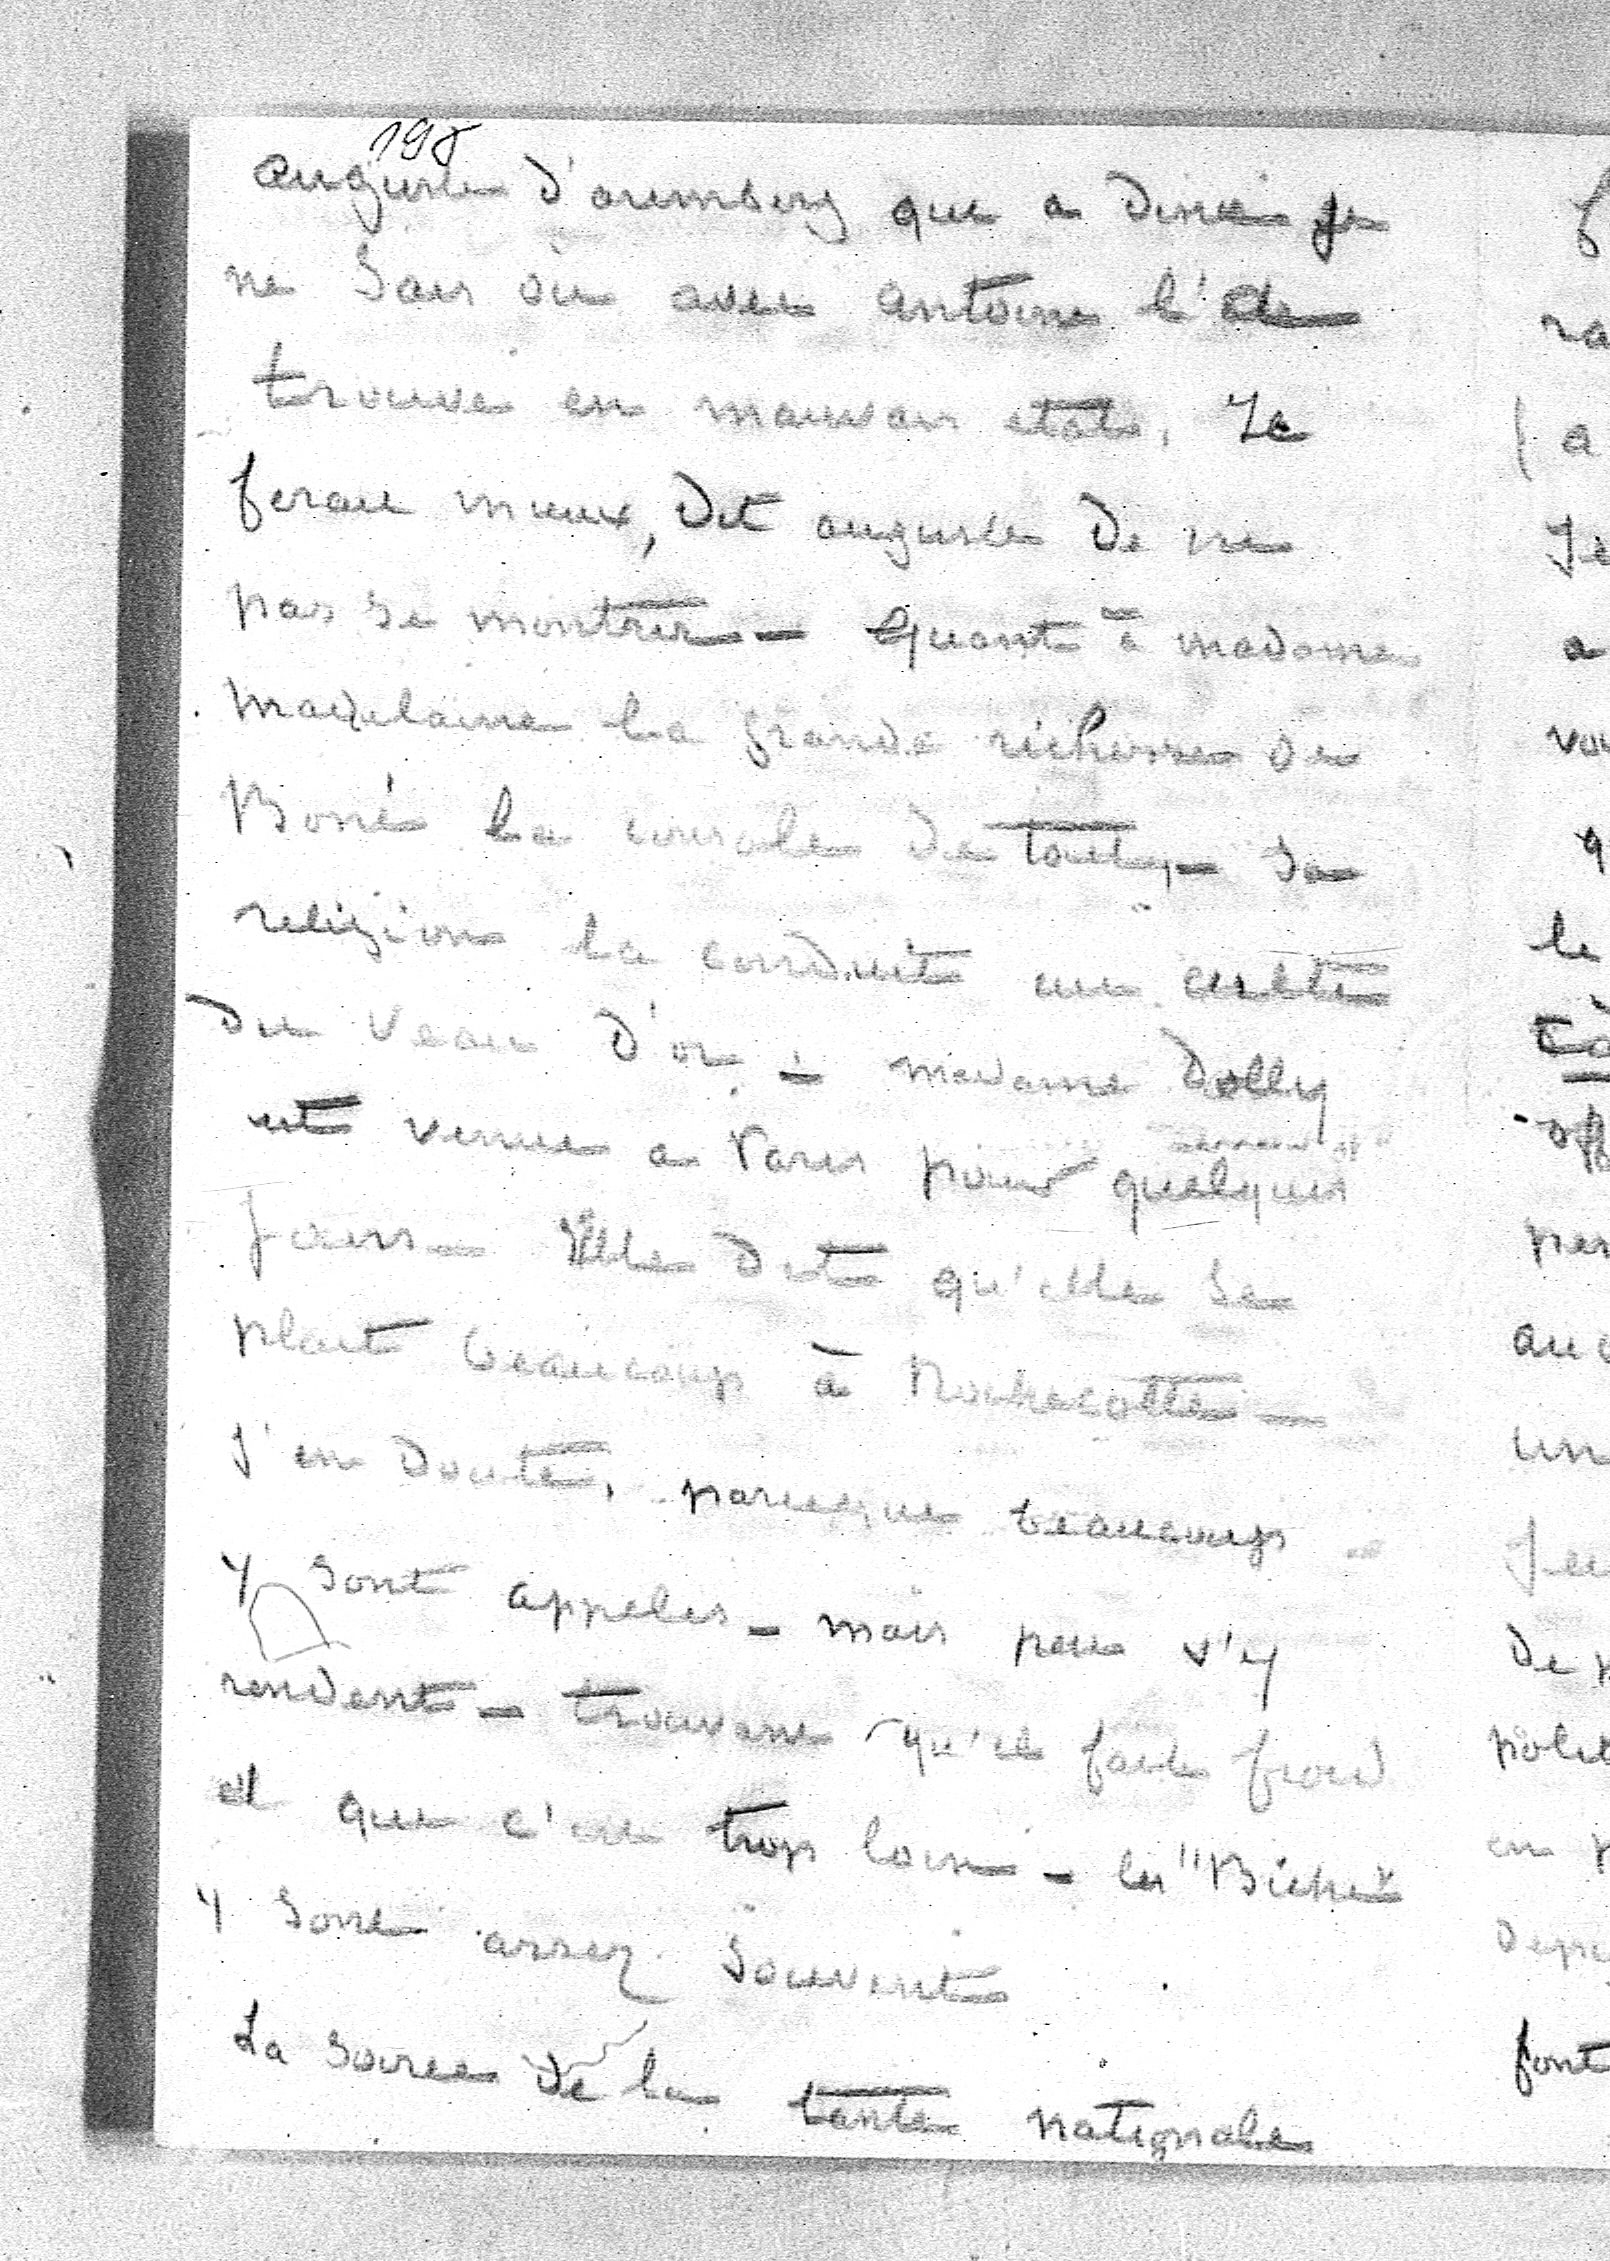 198
auguste d'aremberg qui a diné je
ne sais où avec antoine l'a
trouvé en mauvais état. Il
ferait mieux, dit auguste de ne
pas se montrer - Quant à madame
Madelaine la grande richesse de
Boni la console de tout, - Sa
religion la conduit au culte
du veau d'or - madame Dolly
est venue a Paris pour quelques
jours - Elle dit qu'elle se
plait beaucoup à Rochecotte -
J'en doute, parceque beaucoup
y sont appelés - mais peu s'y
rendent - trouvant qu'il fait froid
et que c'est trop loin - les "Biches"
y sont assez souvent
La soirée de la tante nationale
f
ra
a
Je
a
vou
q
le
off
per
au
un
De
en
font